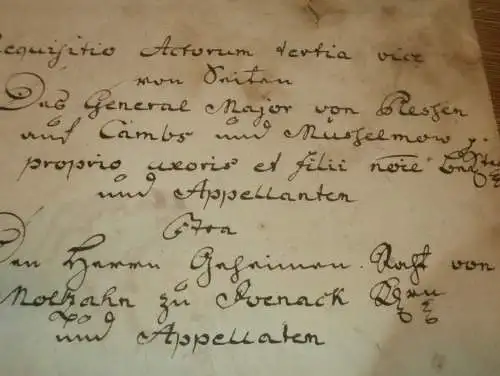 Requisitio Actorum tertia vice
von Seiten
Des General Major von Plessen
auf Cambs und Müsselmow p.
proprio uxoris et filii nõie
und Appellanten
Ctra
Den Herrn Geheimen Raht von
Moltzahn zu Ivenack
und Appellaten